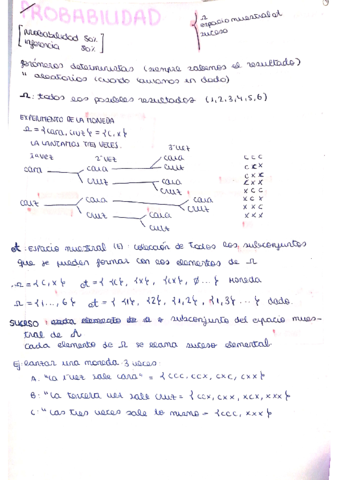 PROBABILIDAD
Ω
espacio muestral A
suceso
[ probabilidad 50%
inferencia 50% ]
fenómenos deterministas (siempre sabemos el resultado)
" aleatorios (cuando lanzamos un dado)
Ω: todos los posibles resultados (1,2,3,4,5,6)
EXPERIMENTO DE LA MONEDA
Ω = {cara, cruz} = {C,X}
LA LANZAMOS TRES VECES.
1ª VEZ 2ª VEZ 3ª VEZ
cara cara cara CCC
cruz CCX
cruz cara CXC
cruz CXX
cruz cara cara XCC
cruz XCX
cruz cara XXC
cruz XXX
A: espacio muestral (Ω): colección de todos los subconjuntos
que se pueden formar con los elementos de Ω
Ω = {C,X} A = { {C}, {X}, {C,X}, ∅ ... } Moneda
Ω = {1,...,6} A = { {1}, {2}, {1,2}, {1,3} ... } dado.
SUCESO: cada elemento de Ω subconjunto del espacio mues-
tral de A
cada elemento de Ω se llama suceso elemental.
Ej: lanzar una moneda 3 veces
A: "La 1ª vez sale cara" = {CCC, CCX, CXC, CXX}
B: "La tercera vez sale cruz" = {CCX, CXX, XCX, XXX}
C: "Las tres veces sale lo mismo" = {CCC, XXX}